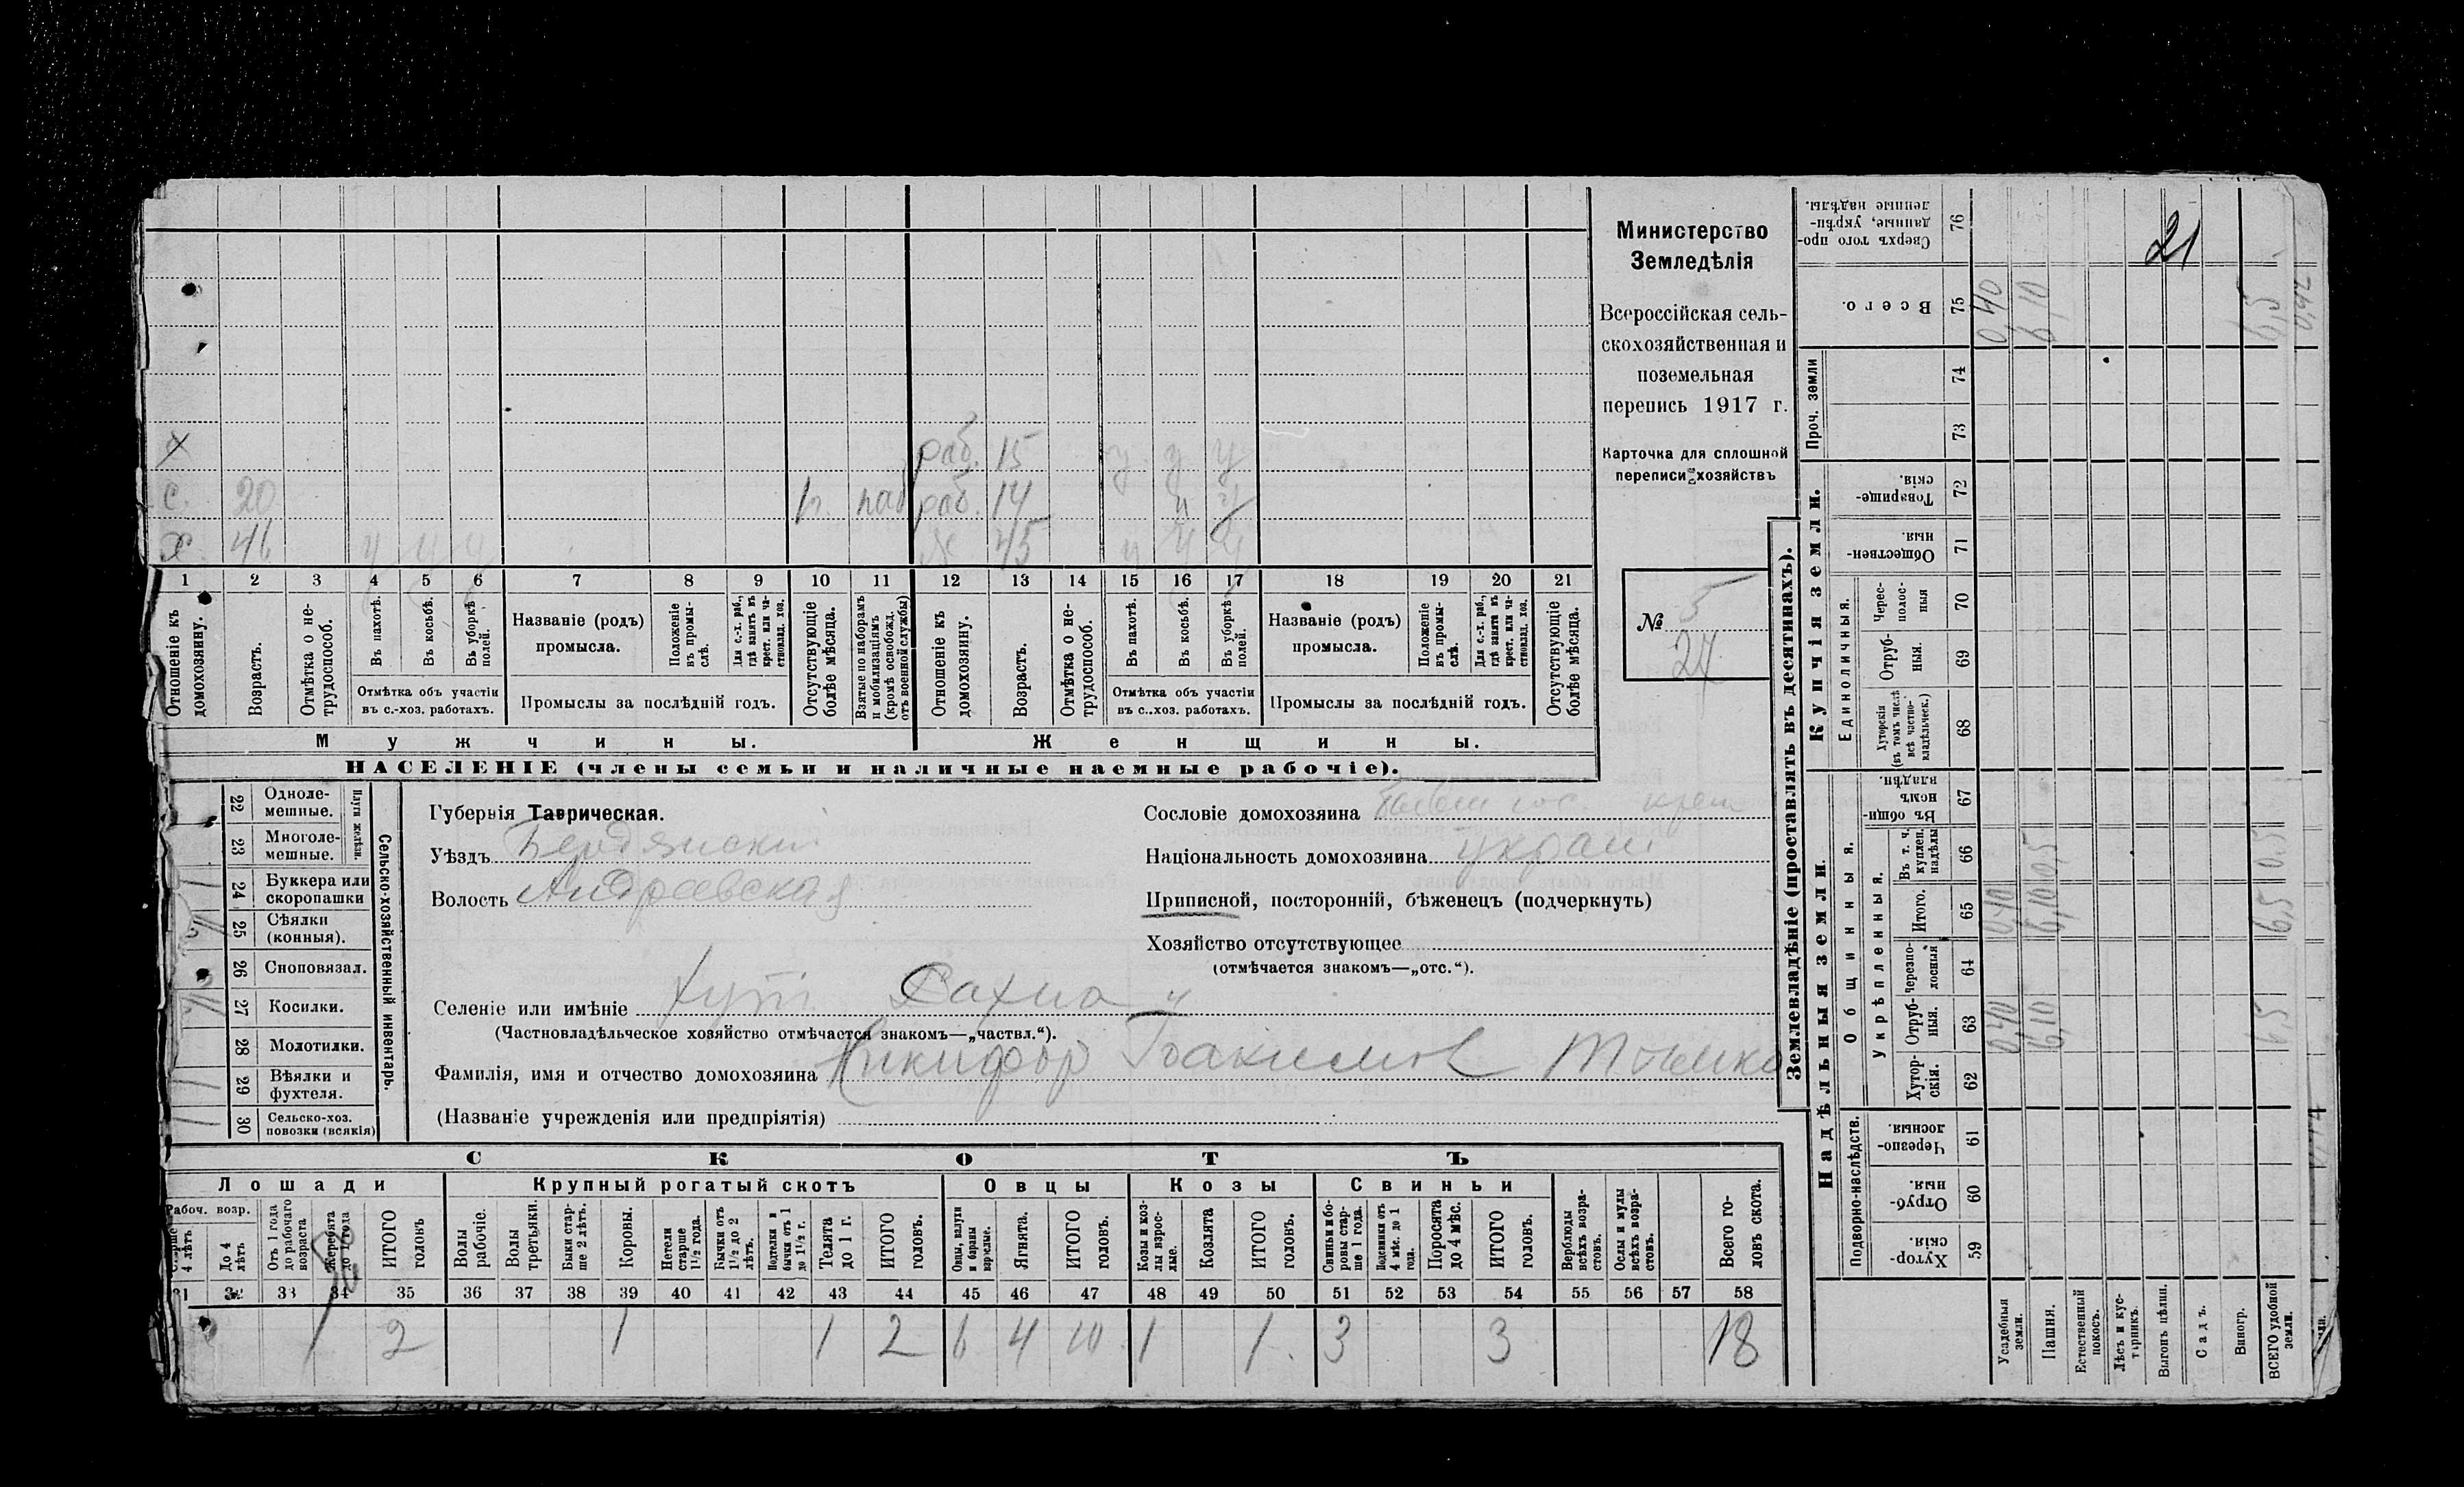 Министерство
Земледѣлія
Всероссійская сель-
скохозяйственная и
поземельная
перепись 1917 г.
Карточка для сплошной
переписи хозяйствъ
№ 5
27
21
х раб. 15 у у у
с. 20 раб. 14 у у
х 46 у у у ж 45 у у у
1 2 3 4 5 6 7 8 9 10 11 12 13 14 15 16 17 18 19 20 21
Отношеніе къ домохозяину.
Возрастъ.
Отмѣтка о не-трудоспособ.
Въ пахотѣ.
Въ косьбѣ.
Въ уборкѣ полей.
Отмѣтка объ участіи
въ с.-хоз. работахъ.
Названіе (родъ)
промысла.
Положеніе въ промы-слѣ.
Для с.-х. раб., гдѣ занятъ въ крест. или ча-стновлад. хоз.
Промыслы за послѣдній годъ.
Отсутствующіе болѣе мѣсяца.
Взятые по наборамъ и мобилизаціямъ (кромѣ освобожд. отъ военной службы)
Отношеніе къ домохозяину.
Возрастъ.
Отмѣтка о не-трудоспособ.
Въ пахотѣ.
Въ косьбѣ.
Въ уборкѣ полей.
Отмѣтка объ участіи
въ с..хоз. работахъ.
Названіе (родъ)
промысла.
Положеніе въ промы-слѣ.
Для с.-х. раб., гдѣ заняты въ крест. или ча-стновлад. хоз.
Промыслы за послѣдній годъ.
Отсутствующіе болѣе мѣсяца.
Мужчины. Женщины.
НАСЕЛЕНІЕ (члены семьи и наличные наемные рабочіе).
Сельско-хозяйственный инвентарь.
Плуги желѣзн.
22 Одноле-мешные.
23 Многоле-мешные.
24 Буккера или скоропашки 1
25 Сѣялки (конныя).
26 Сноповязал.
27 Косилки.
28 Молотилки.
29 Вѣялки и фухтеля. 1
30 Сельско-хоз. повозки (всякія) 1
Губернія Таврическая.
Уѣздъ Бердянскій
Волость Андреевская
Сословіе домохозяина крест
Національность домохозяина украи
Приписной, посторонній, бѣженецъ (подчеркнуть)
Хозяйство отсутствующее
(отмѣчается знакомъ—„отс.“).
Селеніе или имѣніе Хут.
(Частновладѣльческое хозяйство отмѣчается знакомъ—„частвл.“).
Фамилія, имя и отчество домохозяина Никифор
(Названіе учрежденія или предпріятія)
СКОТЪ
Лошади Крупный рогатый скотъ Овцы Козы Свиньи
Рабоч. возр.
Старше 4 лѣтъ
До 4 лѣтъ
Отъ 1 года до рабочаго возраста
Жеребята до 1 года
ИТОГО головъ
Волы рабочіе.
Волы третьяки.
Быки стар-ше 2 лѣтъ.
Коровы.
Нетели старше 1½ года.
Бычки отъ 1½ до 2 лѣтъ.
Подтелки и бычки отъ 1 до 1½ г.
Телята до 1 г.
ИТОГО головъ.
Овцы, валухи и бараны взрослые.
Ягнята.
ИТОГО головъ.
Козы и коз-лы взрос-лые.
Козлята
ИТОГО головъ.
Свиньи и бо-ровы стар-ше 1 года.
Подсвинки отъ 4 мѣс. до 1 года.
Поросята до 4 мѣс.
ИТОГО головъ.
Верблюды всѣхъ возра-стовъ.
Ослы и мулы всѣхъ возра-стовъ.
Всего го-ловъ скота.
31 32 33 34 35 36 37 38 39 40 41 42 43 44 45 46 47 48 49 50 51 52 53 54 55 56 57 58
1 2 1 1 2 6 4 10 1 1 3 3 18
Землевладѣніе (проставлять въ десятинахъ).
Надѣльныя земли. Купчія земли. Проч. земли
Подворно-наслѣдств.
Общинныя.
Укрѣпленныя.
Единоличныя.
Хутор-скія. 59
Отруб-ныя. 60
Черезпо-лосныя. 61
Хутор-скія. 62
Отруб-ныя. 63
Черезпо-лосныя 64
Итого. 65
Въ т. ч. куплен. надѣлы 66
Въ общин-номъ владѣн. 67
Хуторскія (въ томъ числѣ всѣ частно-владѣльческ.) 68
Отруб-ныя. 69
Черес-полос-ныя 70
Обществен-ныя. 71
Товарище-скія. 72
73
74
Всего. 75
Сверхъ того про-данные, укрѣп-ленные надѣлы. 76
Усадебныя земли. 0,40 0,40 0,40
Пашня. 6,10 6,10 0,5 6,10
Естественный покосъ.
Лѣсъ и кус-тарникъ.
Выгонъ цѣлин.
Садъ.
Виногр.
ВСЕГО удобной земли. 6,5 6,5 0,5 6,5
0,42